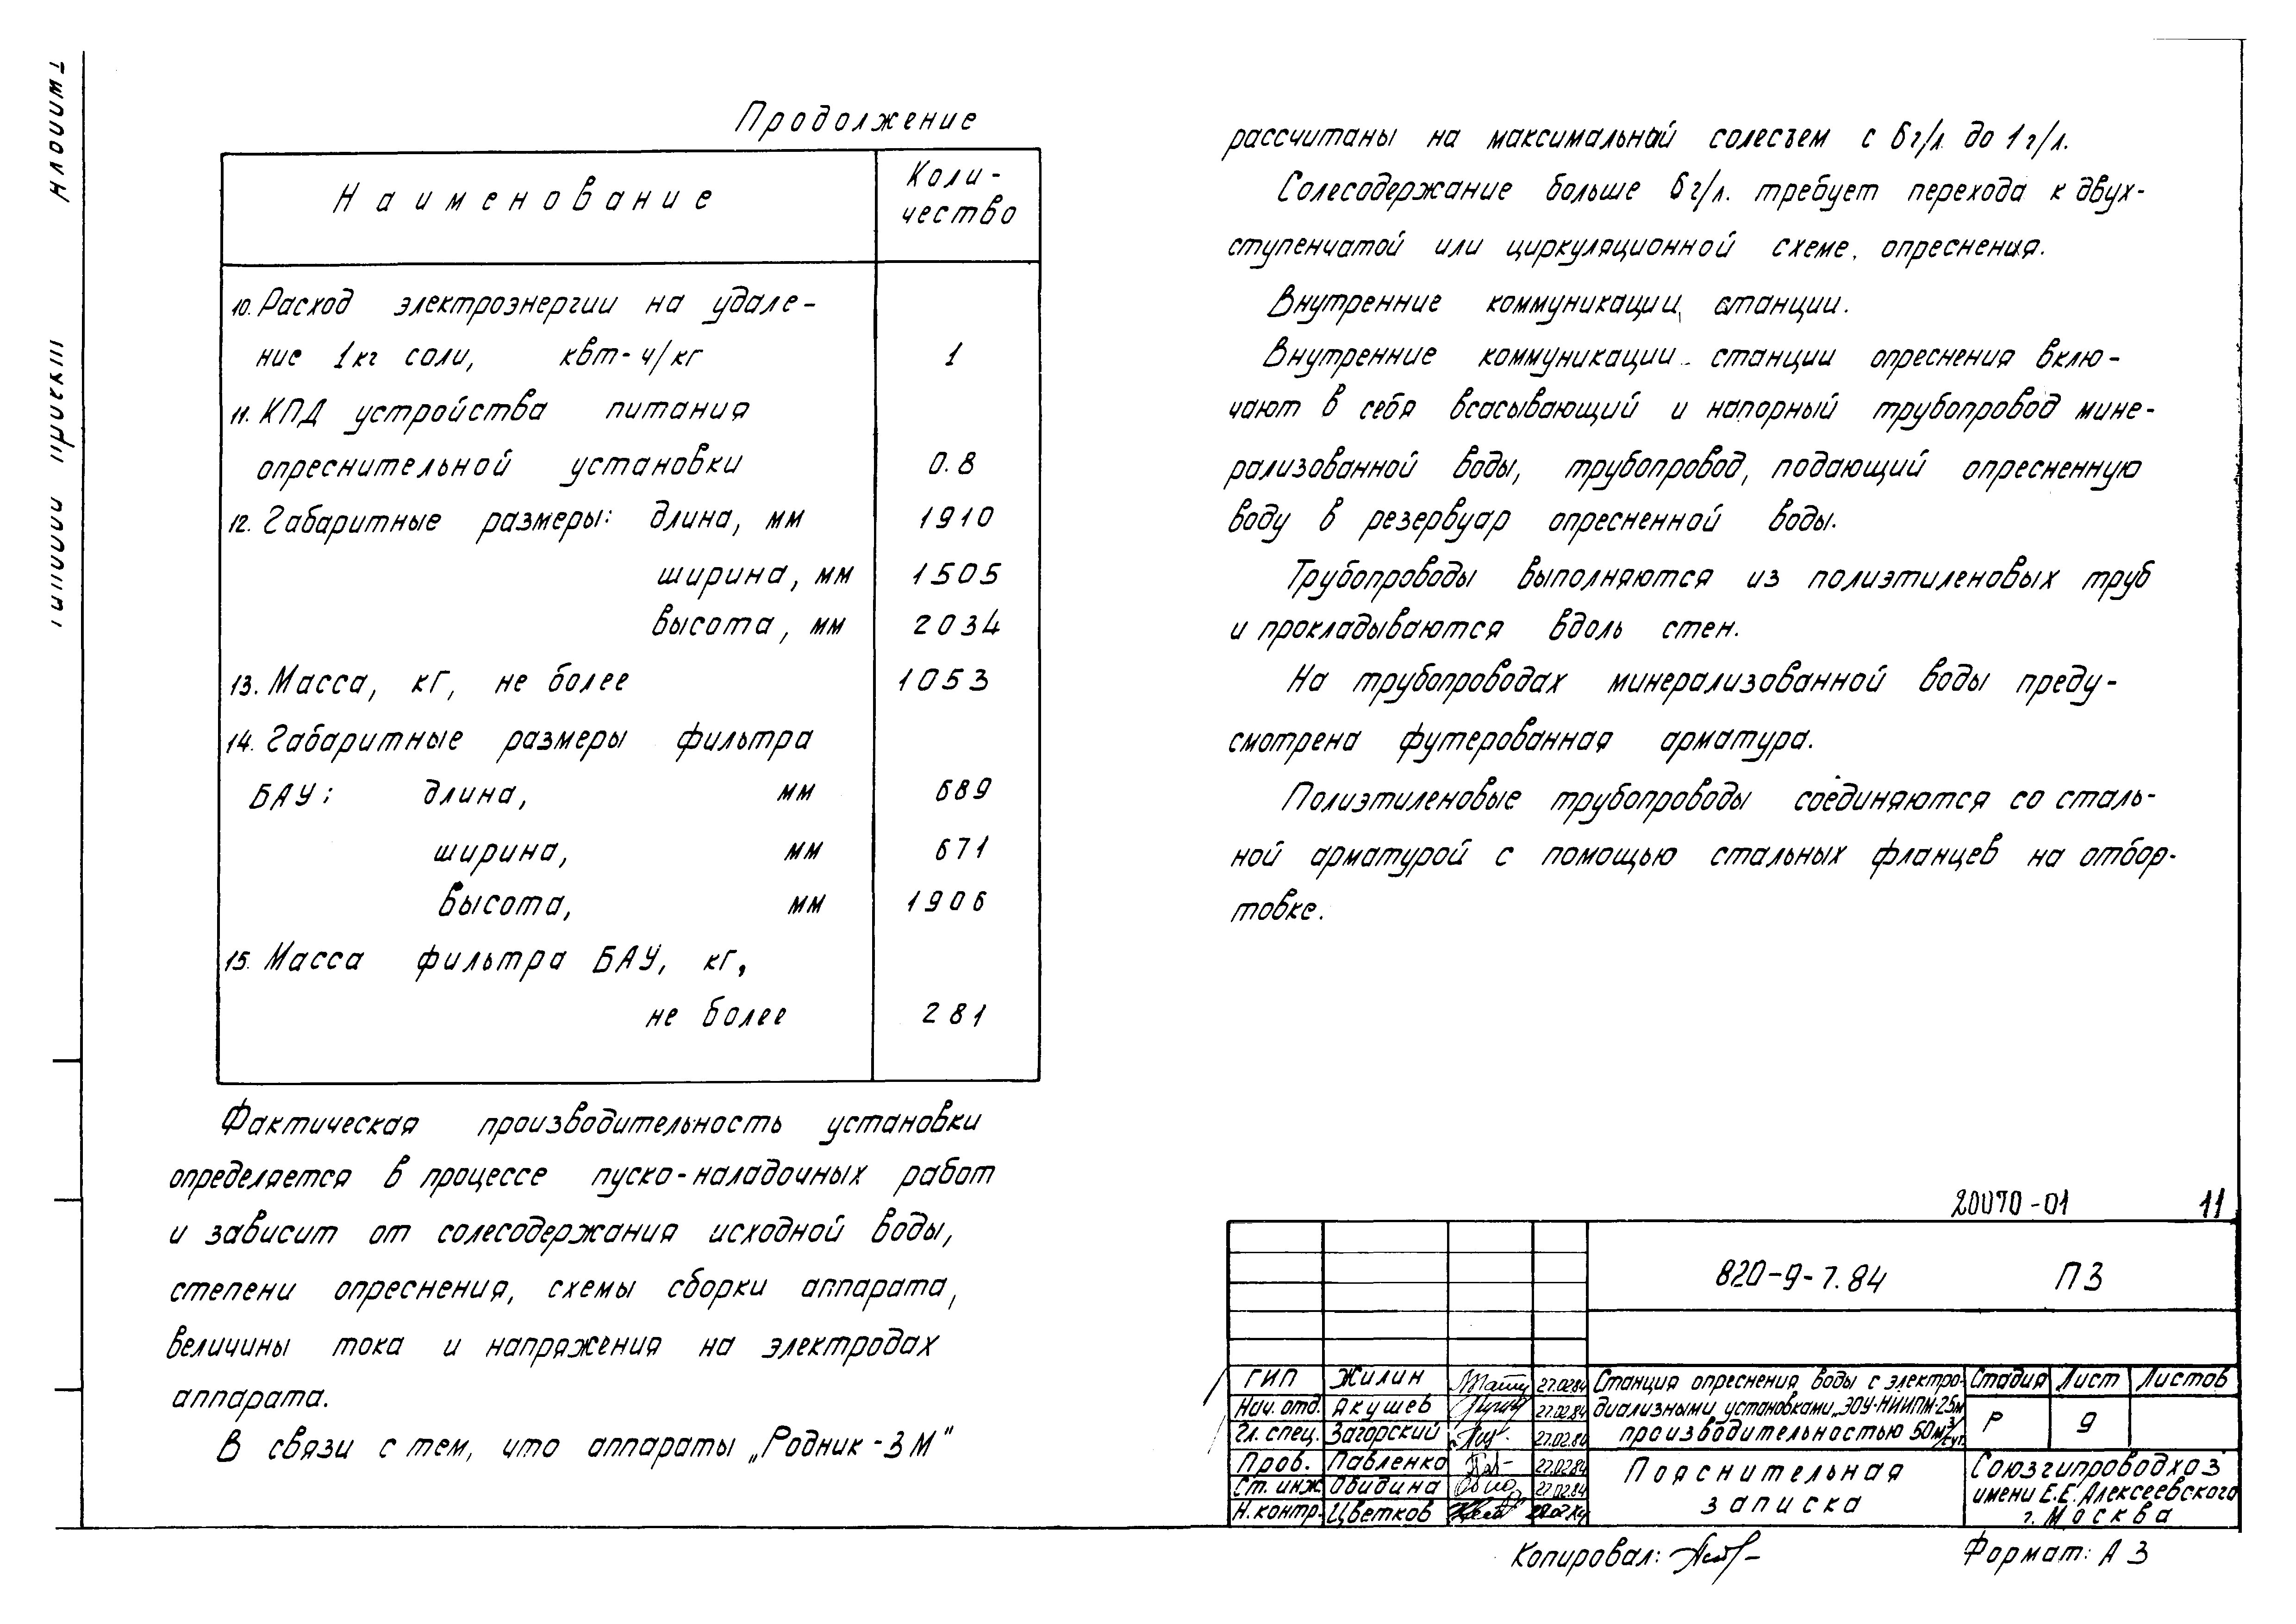 Продолжение
Наименование
Коли-
чество
10. Расход электроэнергии на удале-
ние 1кг соли, квт-ч/кг 1
11. КПД устройства питания
опреснительной установки 0.8
12. Габаритные размеры: длина, мм 1910
ширина, мм 1505
высота, мм 2034
13. Масса, кг, не более 1053
14. Габаритные размеры фильтра
БАУ: длина, мм 689
ширина, мм 671
высота, мм 1906
15. Масса фильтра БАУ, кг,
не более 281
Фактическая производительность установки
определяется в процессе пуско-наладочных работ
и зависит от солесодержания исходной воды,
степени опреснения, схемы сборки аппарата,
величины тока и напряжения на электродах
аппарата.
В связи с тем, что аппараты „Родник-3М"
рассчитаны на максимальный солесъем с 6г/л. до 1г/л.
Солесодержание больше 6г/л. требует перехода к двух-
ступенчатой или циркуляционной схеме. опреснения.
Внутренние коммуникации станции.
Внутренние коммуникации станции опреснения вклю-
чают в себя всасывающий и напорный трубопровод мине-
рализованной воды, трубопровод, подающий опресненную
воду в резервуар опресненной воды.
Трубопроводы выполняются из полиэтиленовых труб
и прокладываются вдоль стен.
На трубопроводах минерализованной воды преду-
смотрена футерованная арматура.
Полиэтиленовые трубопроводы соединяются со сталь-
ной арматурой с помощью стальных фланцев на отбор-
товке.
20070-01 11
820-9-7.84 ПЗ
ГИП Жилин 27.02.84
Нач. отд. Якушев 27.02.84
Гл. спец. Загорский 27.02.84
Пров. Павленко 27.02.84
Ст. инж. Обидина 27.02.84
Н. контр. Цветков
Станция опреснения воды с электро-
диализными установками „ЭОУ-НИИПМ-25м
производительностью 50м³/сут.
Стадия Лист Листов
Р 9
Пояснительная
записка
Союзгипроводхоз
имени Е.Е. Алексеевского
г. Москва
Копировал:
Формат: А3